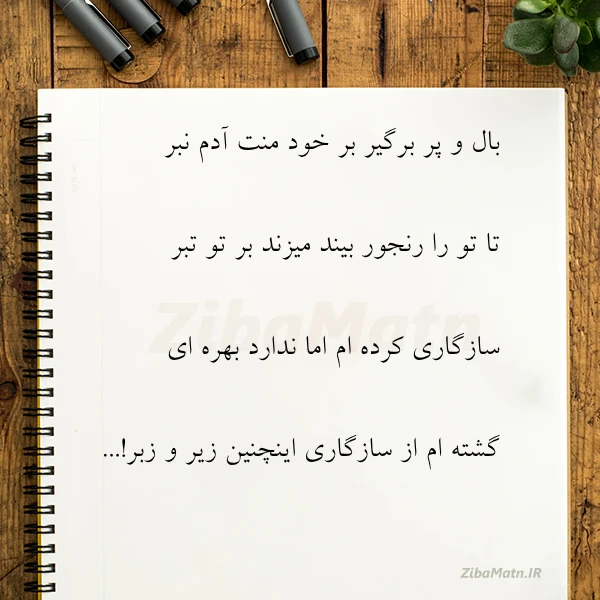 بال و پر برگیر بر خود منت آدم نبر
تا تو را رنجور بیند میزند بر تو تبر
ZibaMatn
سازگاری کرده ام اما ندارد بهره ای
گشته ام از سازگاری اینچنین زیر و زبر!...
ZibaMatn.IR